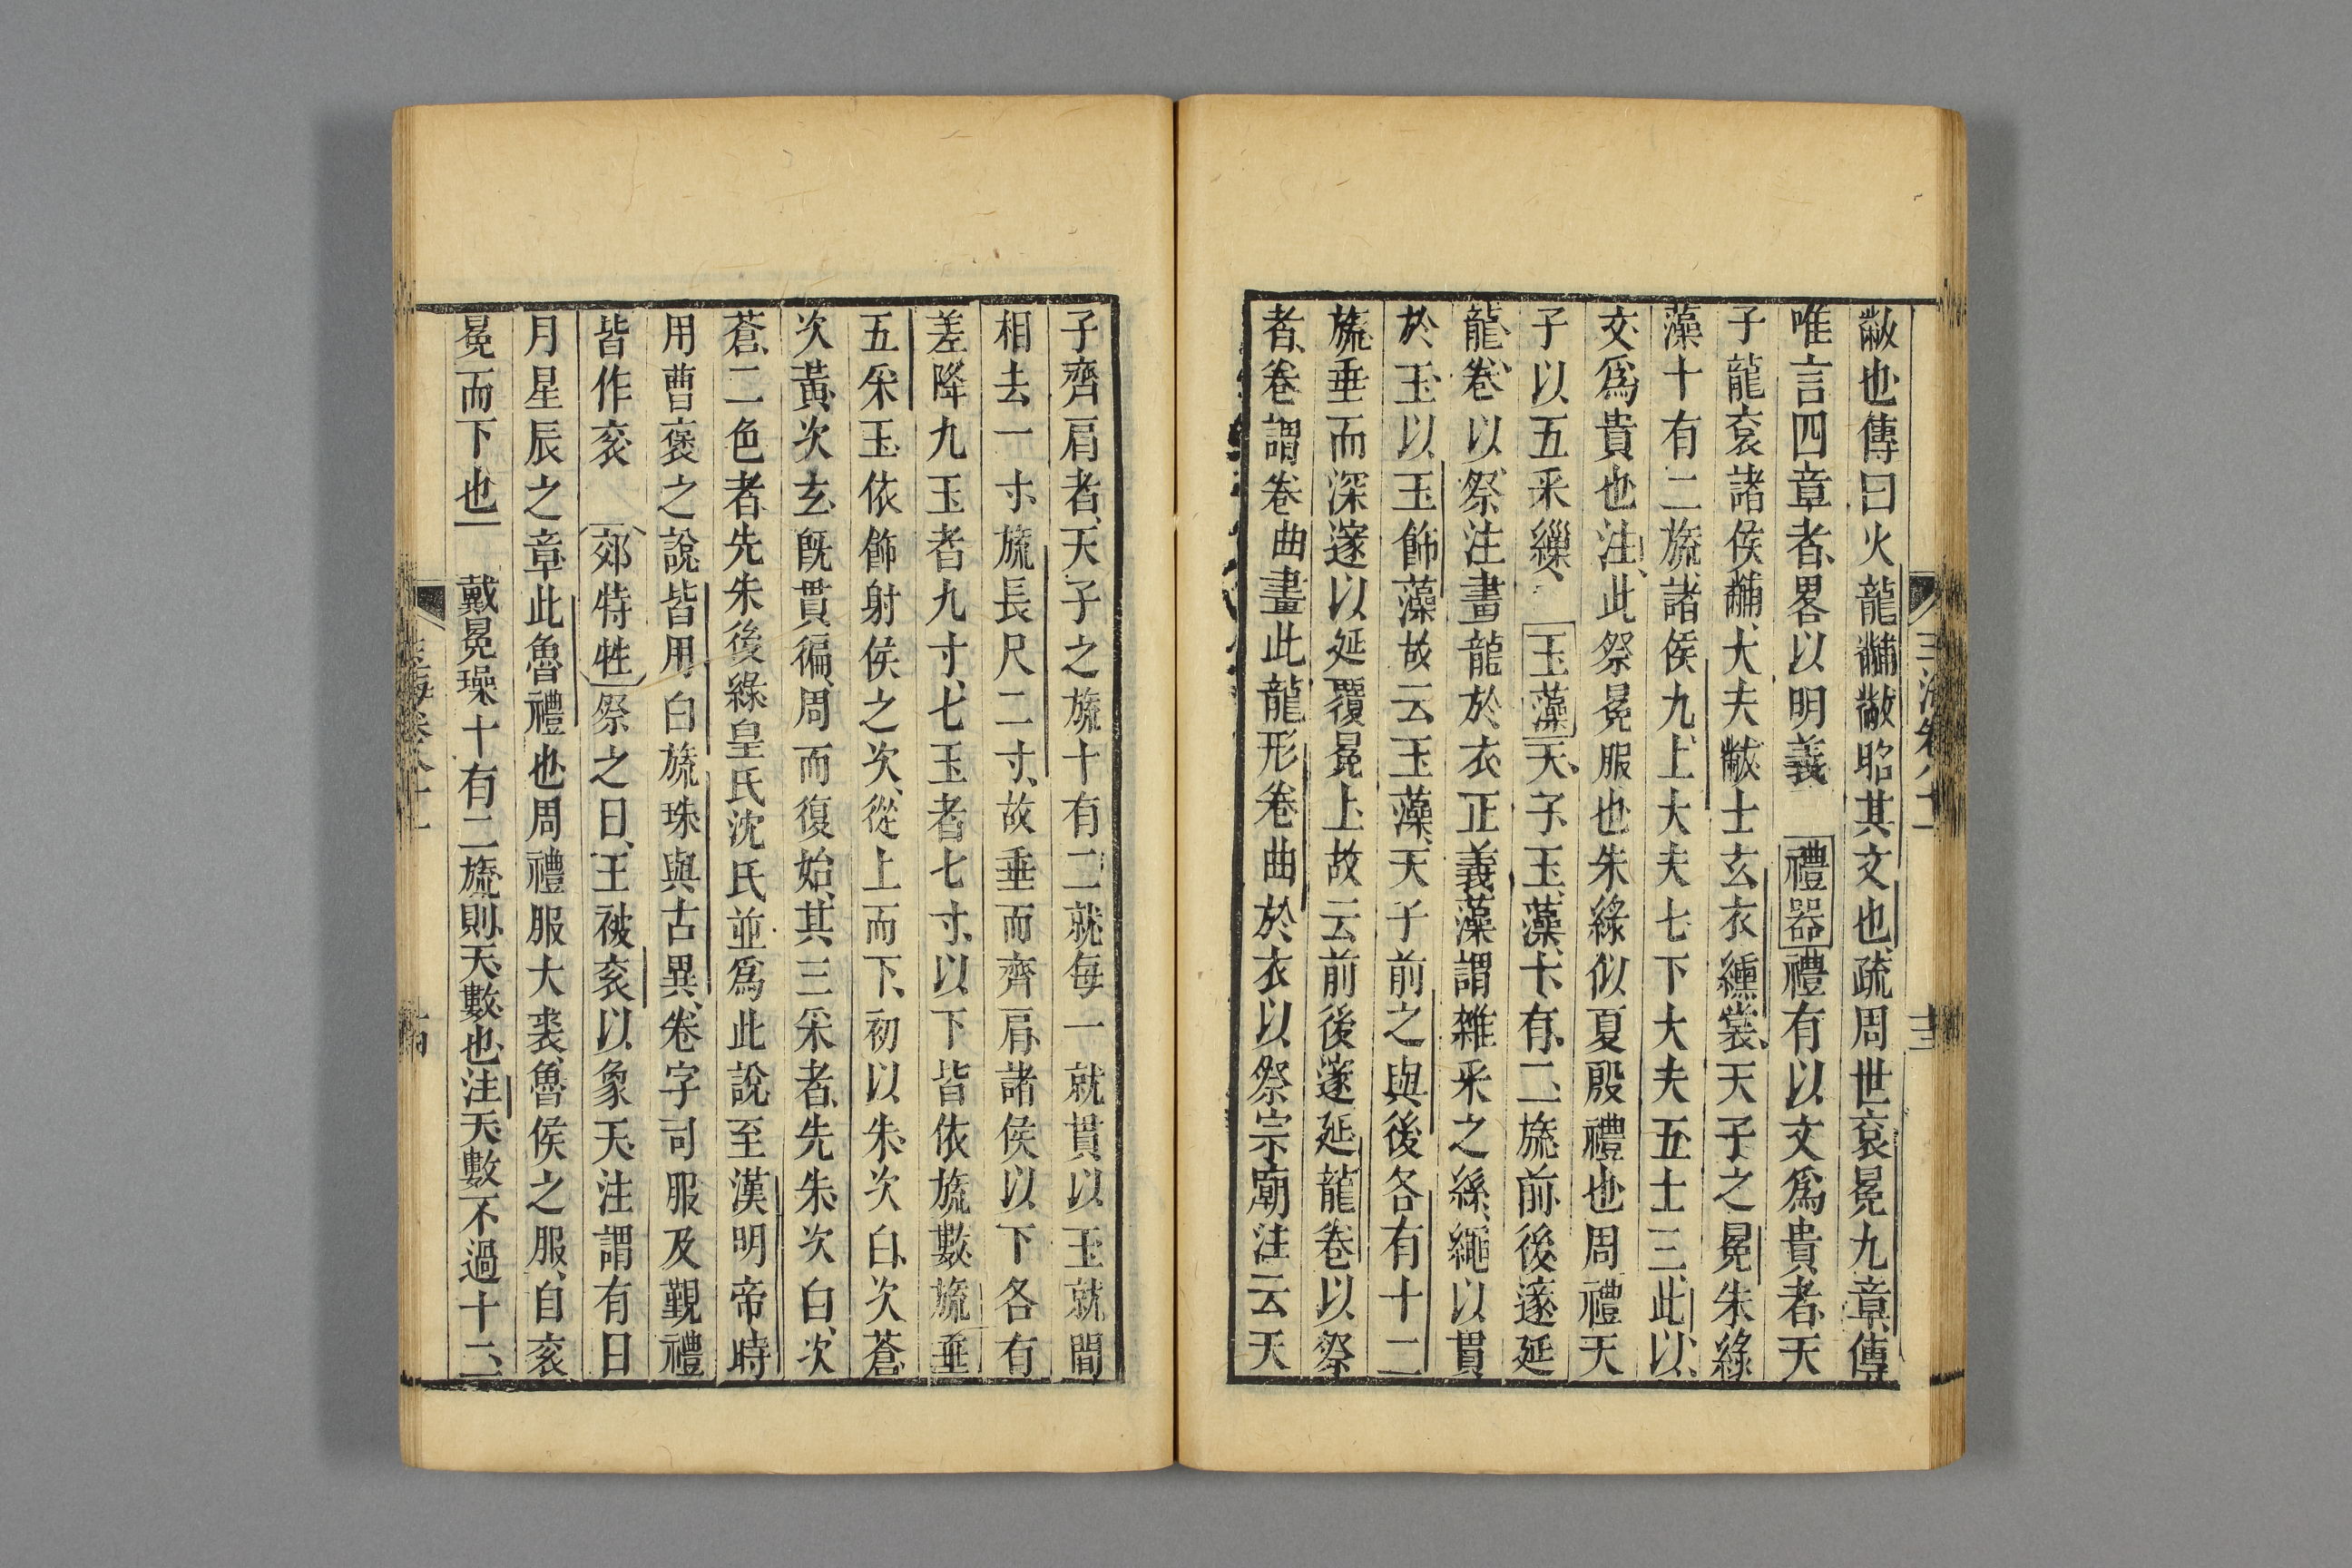 黻也傳曰火龍黼黻昭其文也疏周世衮冕九章傳
唯言四章者畧以明義 禮器禮有以文爲貴者天
子龍衮諸侯黼大夫黻士玄衣纁裳天子之冕朱綠
藻十有二旒諸侯九上大夫七下大夫五士三此以
文爲貴也注此祭冕服也朱綠似夏殷禮也周禮天
子以五采繅 玉藻天子玉藻十有二旒前後邃延
龍卷以祭注畫龍於衣正義藻謂雜采之絲繩以貫
於玉以玉飾藻故云玉藻天子前之與後各有十二
旒垂而深邃以延覆冕上故云前後邃延龍卷以祭
者卷謂卷曲畫此龍形卷曲於衣以祭宗廟注云天
子齊肩者天子之旒十有二就每一就貫以玉就間
相去一寸旒長尺二寸故垂而齊肩諸侯以下各有
差降九玉者九寸七玉者七寸以下皆依旒數旒垂
五采玉依飾射侯之次從上而下初以朱次白次蒼
次黃次玄旣貫徧周而復始其三采者先朱次白次
蒼二色者先朱後綠皇氏沈氏並爲此說至漢明帝時
用曹褒之說皆用白旒珠與古異卷字司服及覲禮
皆作衮 郊特牲祭之日王被衮以象天注謂有日
月星辰之章此魯禮也周禮服大裘魯侯之服自衮
冕而下也 戴冕璪十有二旒則天數也注天數不過十二